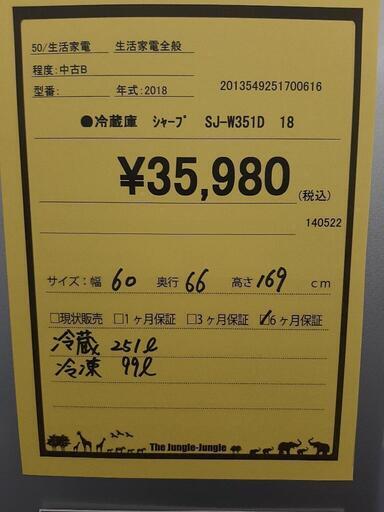 50/生活家電　生活家電全般
程度:中古B
型番:　年式:2018　2013549251700616
●冷蔵庫　ｼｬｰﾌﾟ　SJ-W351D　18
¥35,980(税込)
140522
サイズ:幅 60 奥行 66 高さ 169 cm
□現状販売 □1ヶ月保証 □3ヶ月保証 ☑6ヶ月保証
冷蔵 251ℓ
冷凍 99ℓ
The Jungle-Jungle